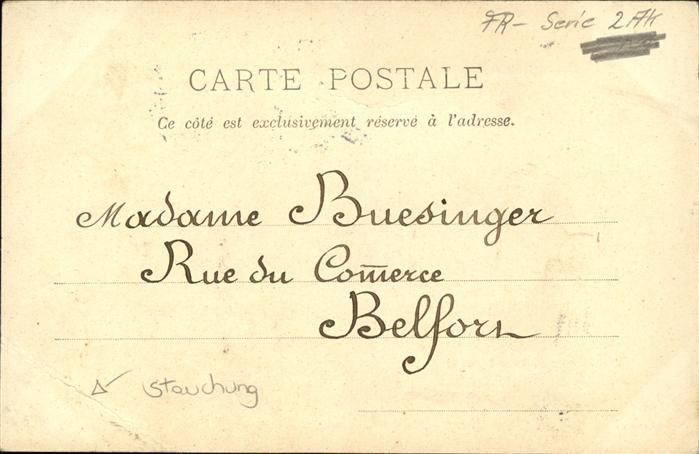 FR- Serie 2 AK
CARTE POSTALE
Ce côté est exclusivement réservé à l'adresse.
Madame Buesinger
Rue du Com̄erce
Belfort
Stauchung